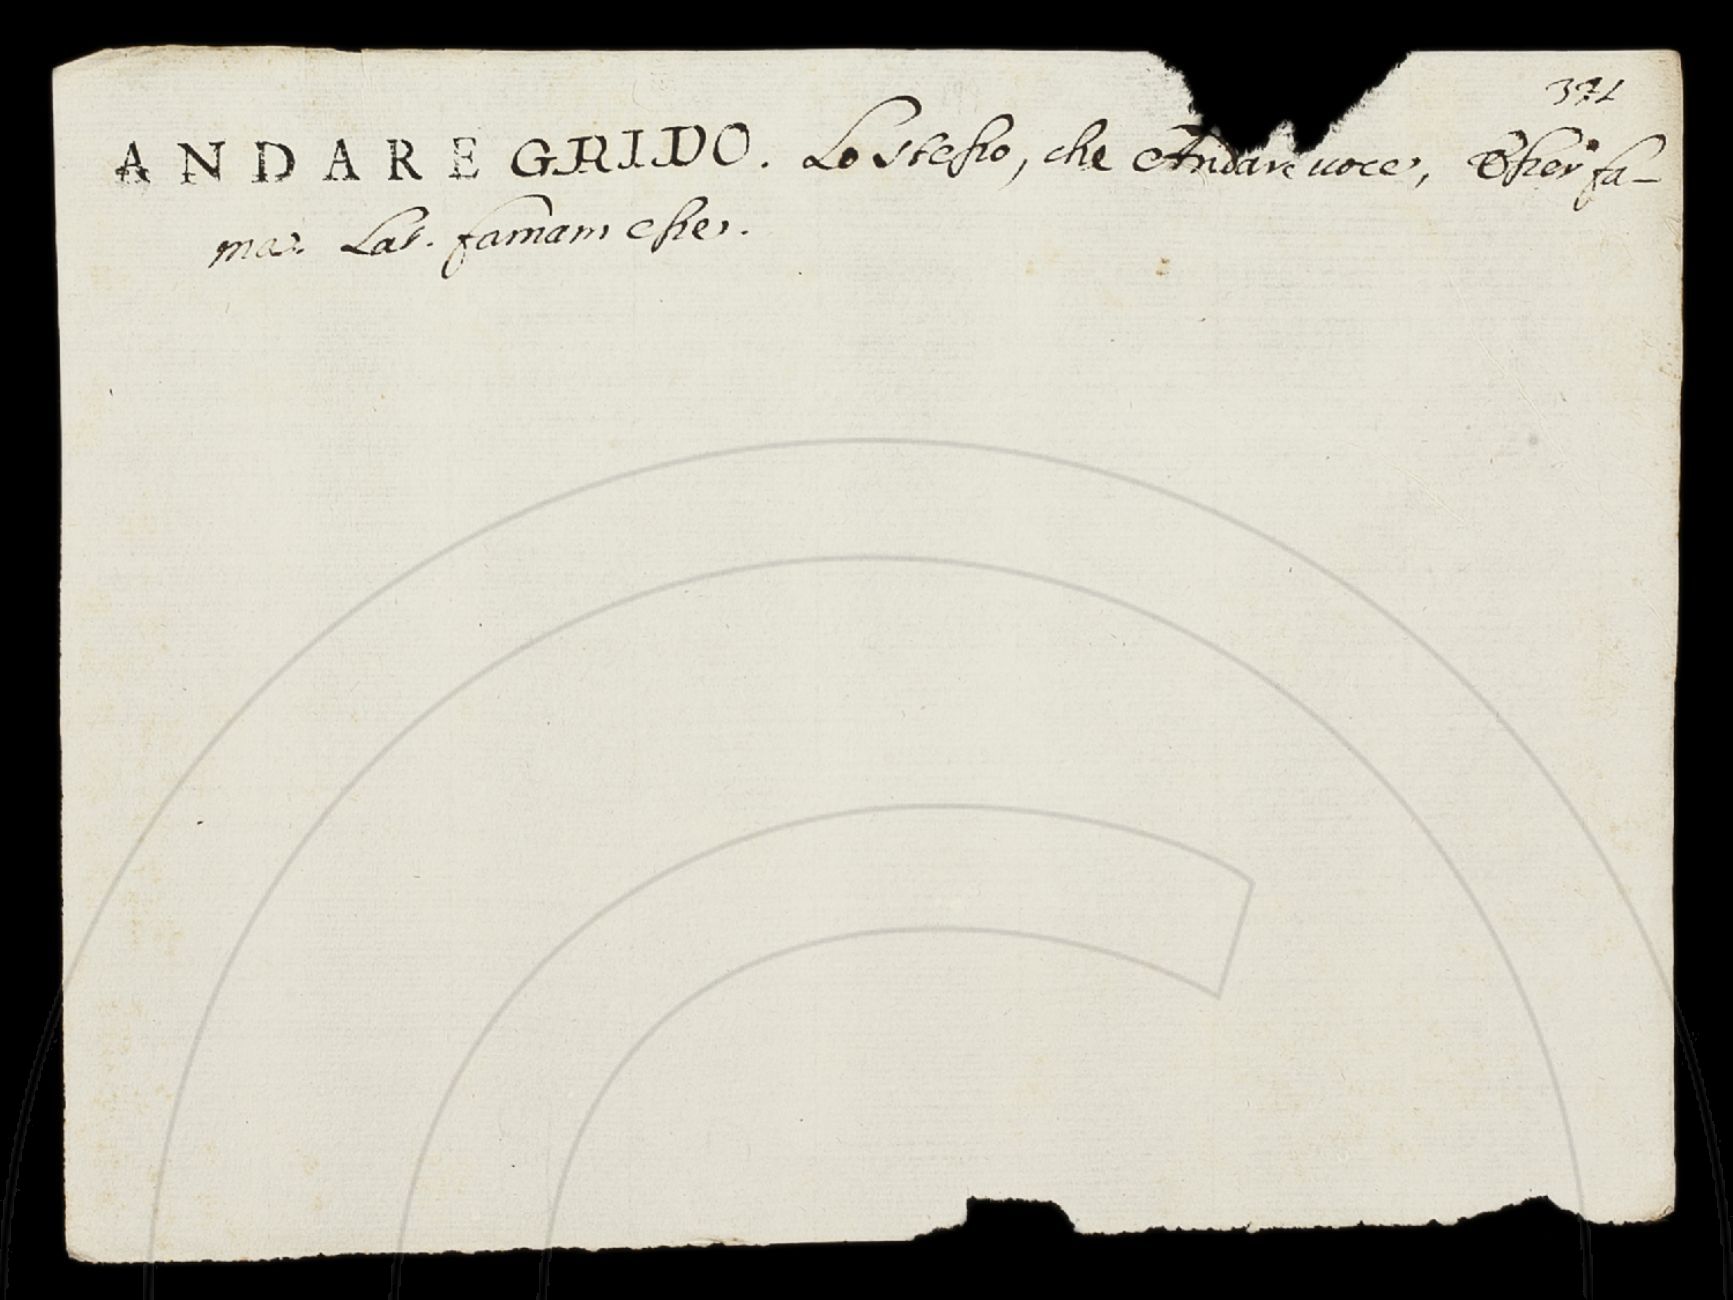 371
ANDARE GRIDO. Lo stesso, che Andare uoce, Esser fa-
ma. Lat. famam esse.